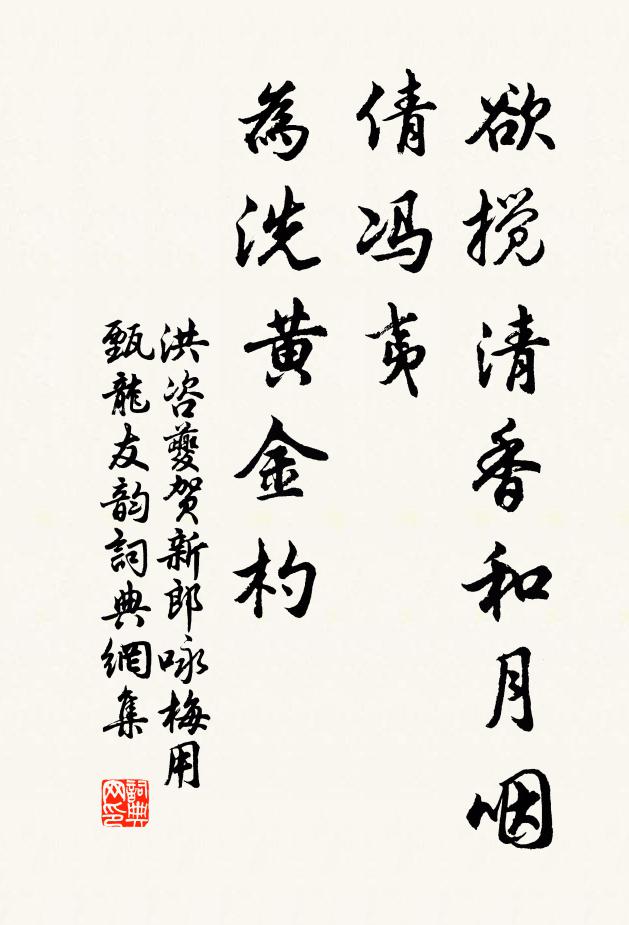 欲搅清香和月咽
倩冯夷
為洗黄金杓
洪咨夔贺新郎咏梅用
甄龍友韵詞典網集
詞典网印